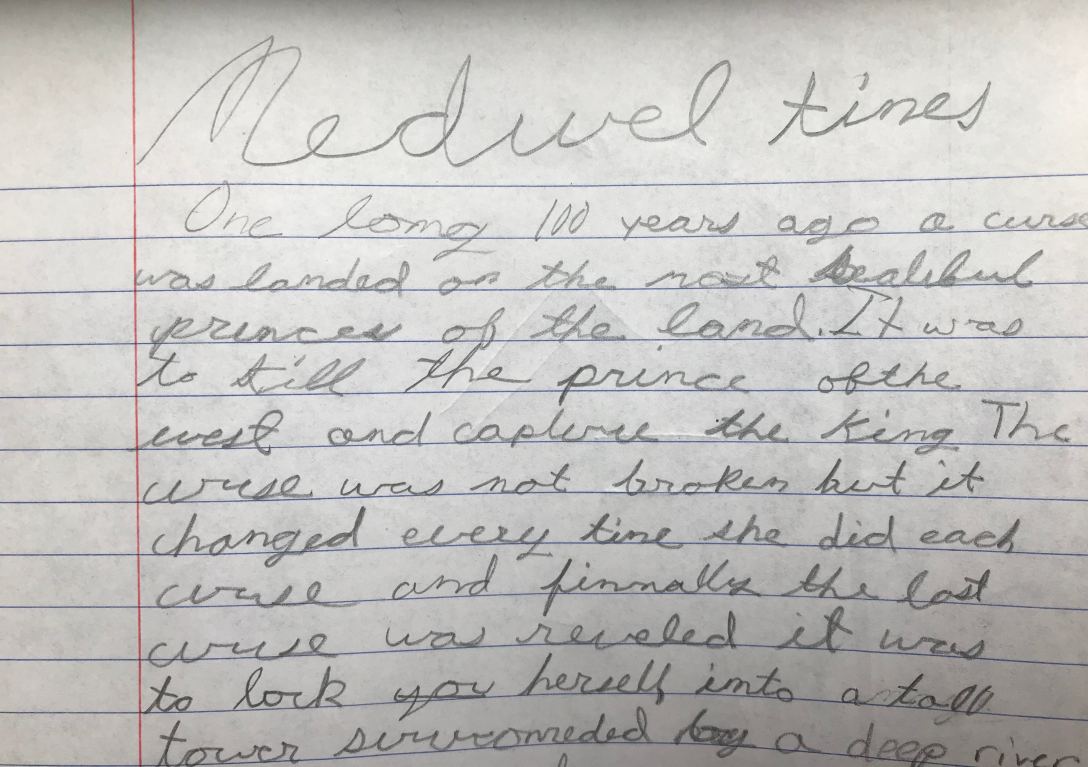 Medivel times
One long 100 years ago a curse
was landed on the most
princes of the land. It was
to kill the prince of the
west and capture the King The
curse was not broken but it
changed every time she did each
curse and finnally the last
curse was reveled it was
to lock herself into a tall
tower surrounded by a deep river